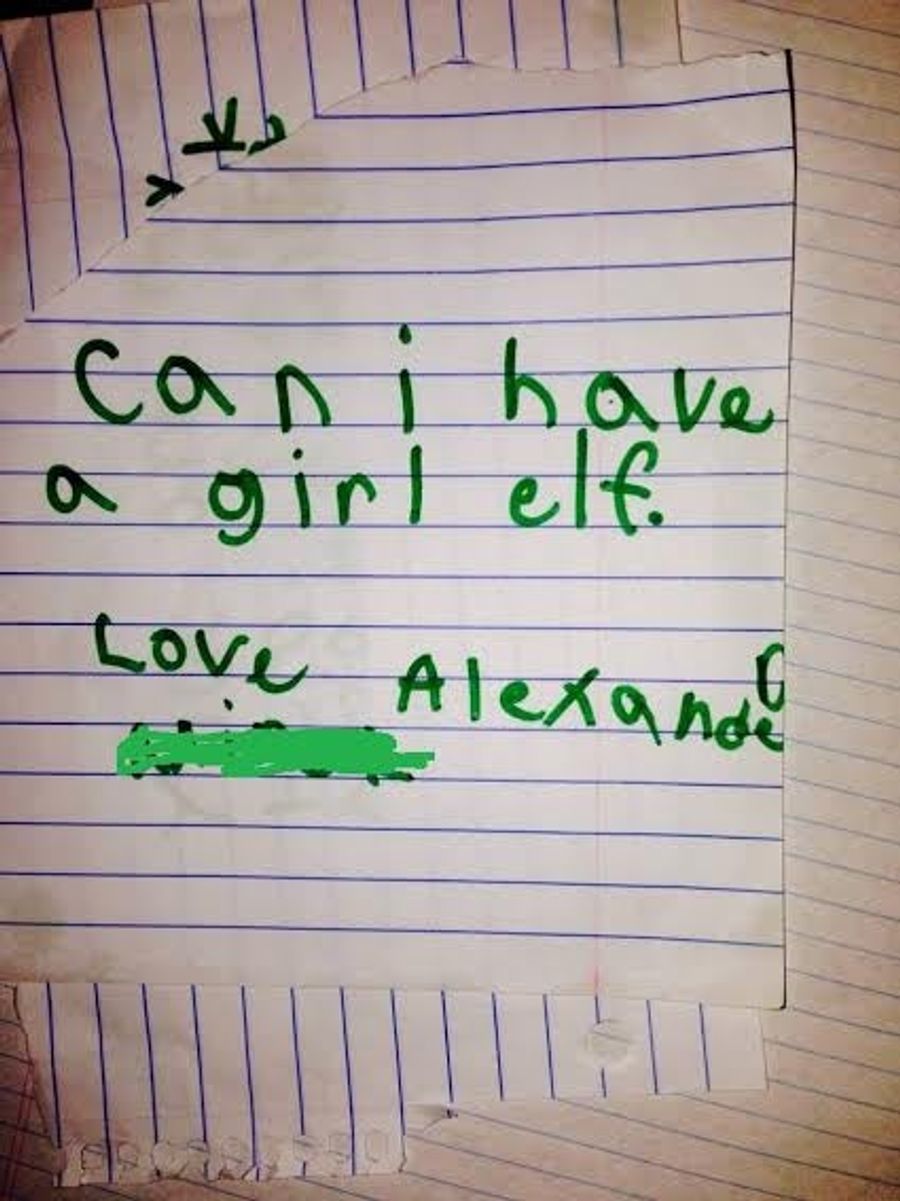 Can i have
a girl elf.
Love Alexander